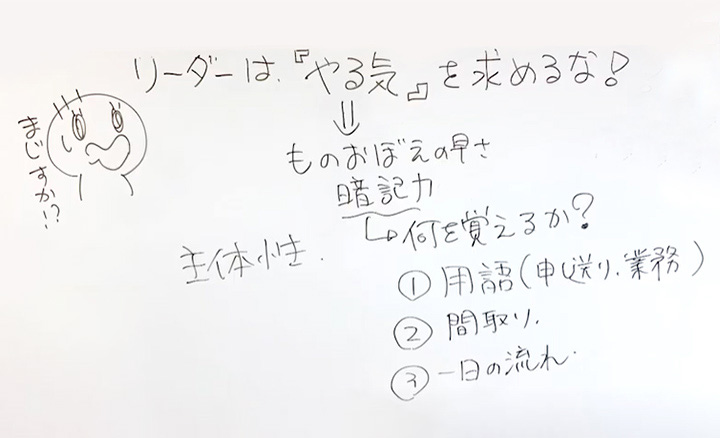 リーダーは、『やる気』を求めるな!
まじすか!?
ものおぼえの早さ
暗記力
何を覚えるか?
主体性.
① 用語(申し送り、業務)
② 間取り.
③ 一日の流れ.